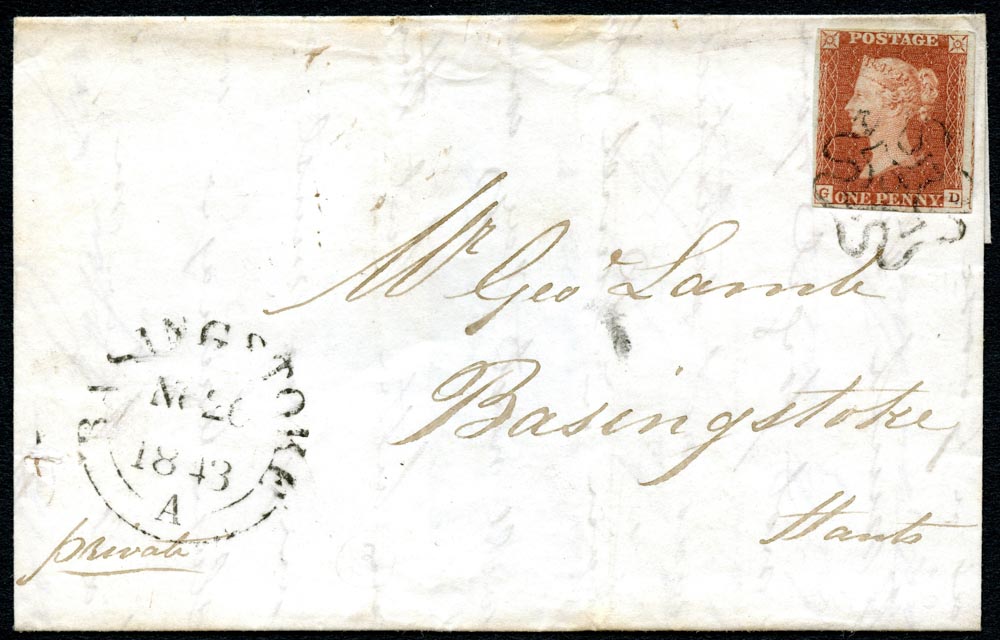 POSTAGE
G ONE PENNY. D
Mr Geo Lamb
Basingstoke
Hants
BASINGSTOKE
1843
A
private